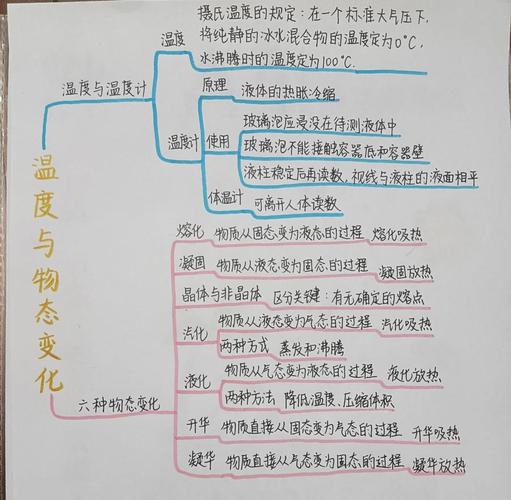 温度与物态变化
温度与温度计
温度
摄氏温度的规定：在一个标准大气压下，
将纯静的冰水混合物的温度定为0℃，
水沸腾时的温度定为100℃.
温度计
原理 液体的热胀冷缩
使用
玻璃泡应浸没在待测液体中
玻璃泡不能接触容器低和容器壁
液柱稳定后再读数，视线与液柱的液面相平
体温计 可离开人体读数
六种物态变化
熔化 物质从固态变为液态的过程 熔化吸热
凝固 物质从液态变为固态的过程 凝固放热
晶体与非晶体 区分关键：有无确定的熔点
汽化 物质从液态变为气态的过程 汽化吸热
两种方式 蒸发和沸腾
液化 物质从气态变为液态的过程 液化放热
两种方法 降低温度、压缩体积
升华 物质直接从固态变为气态的过程 升华吸热
凝华 物质直接从气态变为固态的过程 凝华放热